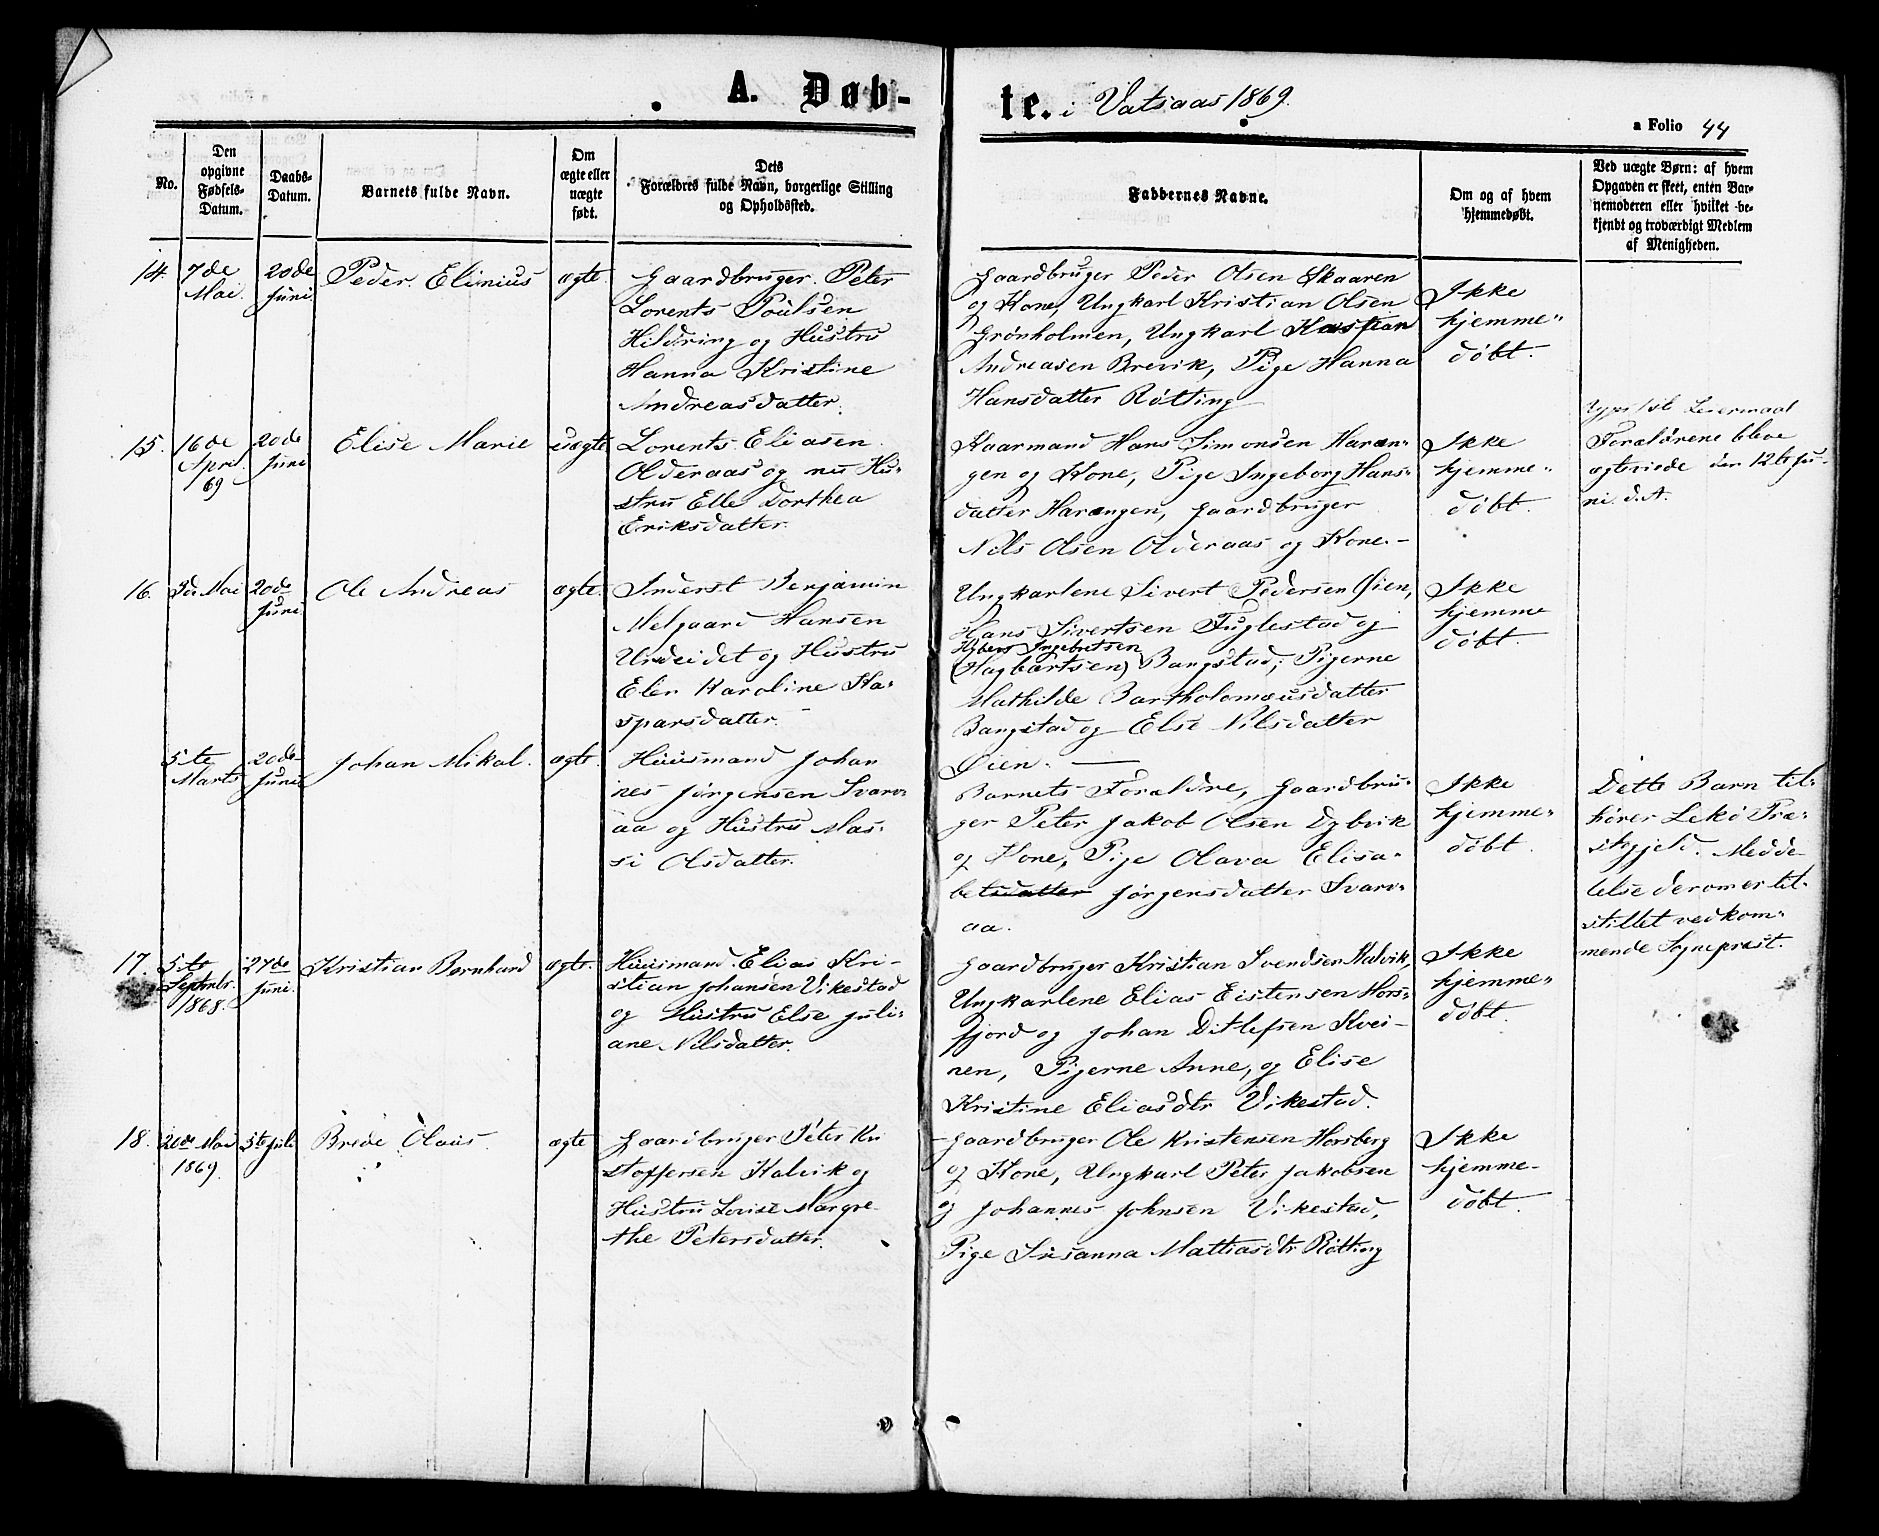 A. Døbte. i Vatsaas 1869.
a Folio 44
No.
Den
opgivne
Fødsels-
Datum.
Daabs-
Datum.
Barnets fulde Navn.
Om
ægte eller
uægte
født.
Dets
Forældres fulde Navn, borgerlige Stilling
og Opholdssted.
Faddernes Navne.
Om og af hvem
hjemmedøbt.
Ved uægte Børn: af hvem
Opgaven er skeet, enten Bar-
nemoderen eller hvilket be-
kjendt og troværdigt Medlem
af Menigheden.
14.
7de
Mai.
20de
Juni.
Peder Elinius
ægte.
Gaardbruger Peter
Lorents Poulsen
Hildring og Hustru
Hanna Kristine
Andreasdatter.
Gaardbruger Peder Olsen Skaaren
og Kone, Ungkarl Kristian Olsen
Grønholmen, Ungkarl
Andreasen Brevik, Pige Hanna
Hansdatter Røtting
Ikke
hjemme-
døbt.
15.
16de
April
69
20de
Juni
Elise Marie
uægte
Lorents Eliasen
Olderaas og nu Hu-
stru Elle Dorthea
Eriksdatter.
Kaarmand Hans Simonsen Haran-
gen og Kone, Pige Ingeborg Hans-
datter Harangen, Gaardbruger
Nils Olsen Olderaas og Kone.-
Ikke
hjemme-
døbt.
Leiermaal
Forældrene bleve
ægteviede den 12te Ju-
ni d. A.
16.
3de Mai
20de
Juni
Ole Andreas
ægte.
Inderst Benjamin
Melgaard Hansen
Undeidet og Hustru
Elen Karoline Ka-
sparsdatter.
Ungkarlene Sivert Pedersen Øien,
Hans Sivertsen Fuglestad og
Ingebrtsen
(Hagbartsen) Bangstad; Pigerne
Mathilde Bartholomæusdatter
Bangstad og Else Nilsdatter
Øien.
Ikke
hjemme
døbt.
5te
Marts
20de
Juni
Johan Mikal.
ægte.
Huusmand Johan
nes Jørgensen Svarv-
aa og Hustru Mas-
si Olsdatter.
Barnets Forældre, Gaardbru-
ger Peter Jakob Olsen Dybvik
og Kone, Pige Olava Elisa-
betsdatter Jørgensdatter Svarv-
aa.
Ikke
hjemme-
døbt.
Dette Barn til-
hører Lekø Præ-
stegjeld. Medde-
lelse derom er til-
stillet vedkom-
mende Sognepræst.
17.
5te
Septmbr.
1868.
27de
Juni.
Kristian Bernhard
ægte.
Huusmand Elias Kri-
stian Johansen Vikestad
og Hustru Else Juli-
ane Nilsdatter.
Gaardbruger Kristian Svendsen Kalvik,
Ungkarlene Elias Eistensen Hors-
fjord og Johan Ditlefsen Kvei-
nen, Pigerne Anne, og Elise
Kristine Eliasdtr Vikestad.
Ikke
hjemme-
døbt
18.
20de Mai
1869.
5te Juli
Brede Olaus
ægte
Gaardbruger Peter Kri
stoffersen Kalvik og
Hustru Lovise Margre-
the Petersdatter.
Gaardbruger Ole Kristensen Horsberg
og Kone, Ungkarl Peter Jakobsen
og Johannes Johnsen Vikestad,
Pige Susanna Mattiasdtr Røtting
Ikke
hjemme-
døbt.